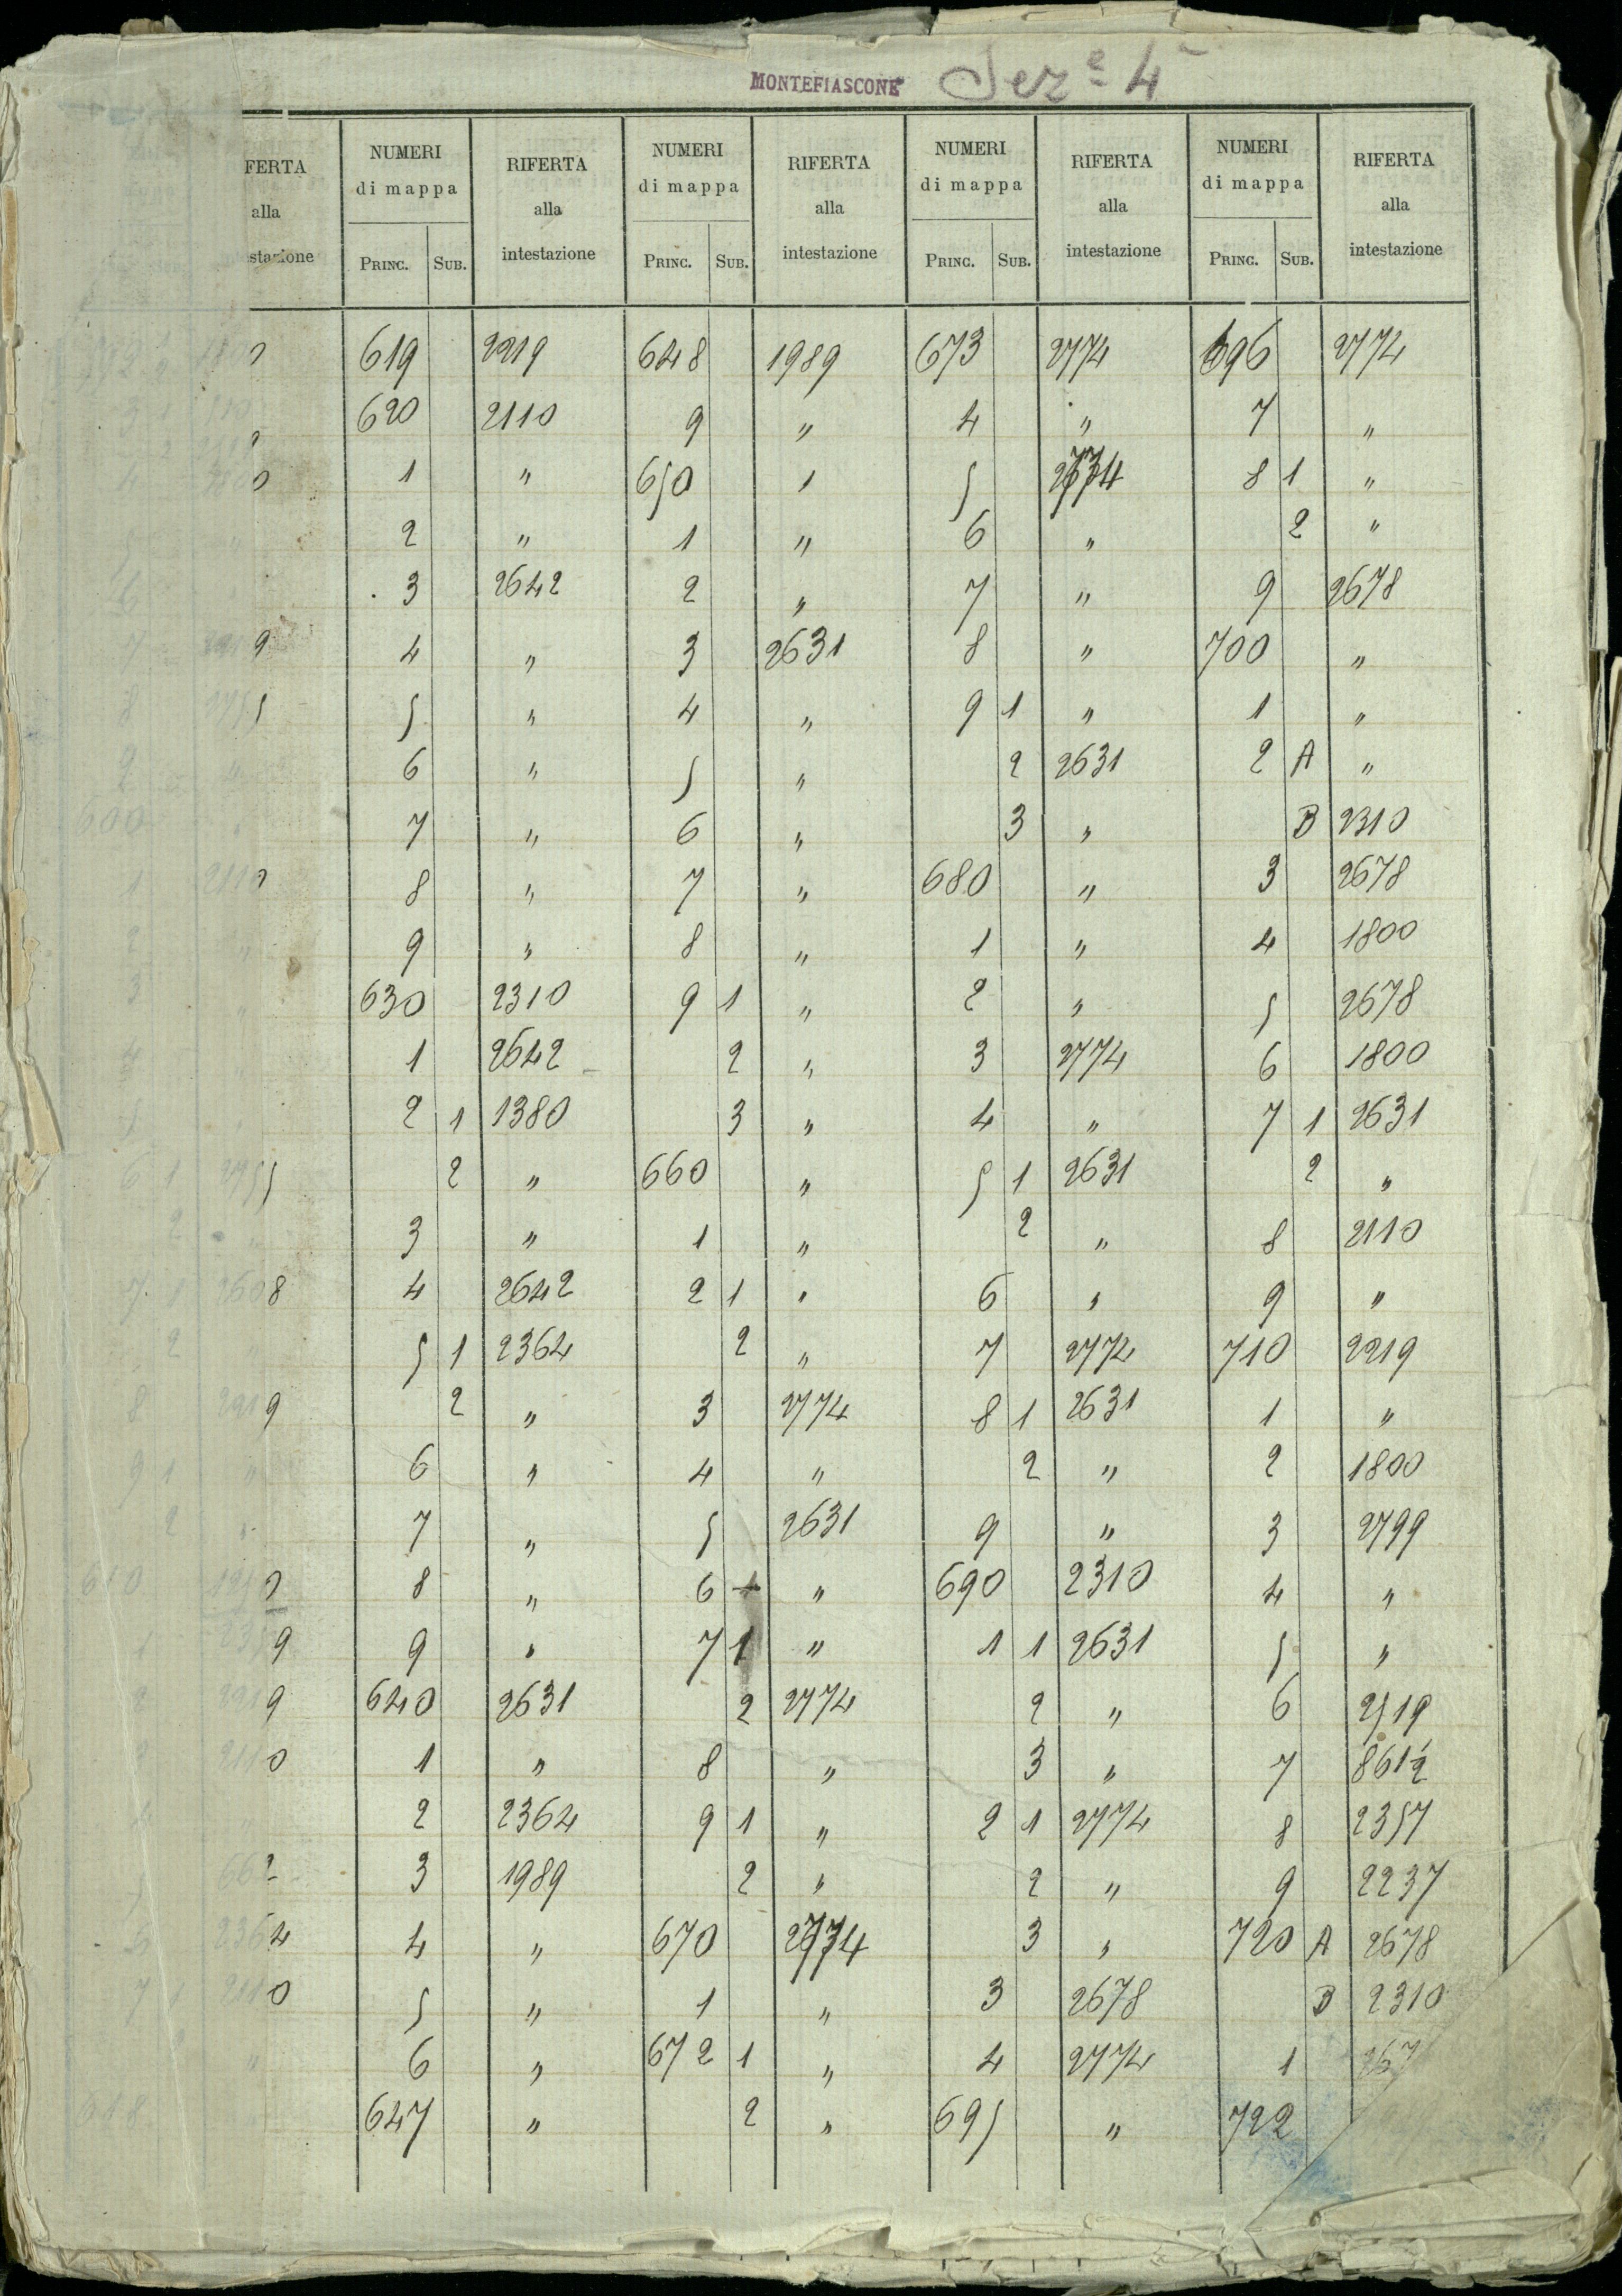 MONTEFIASCONE Sez.e 4
FERTA NUMERI RIFERTA NUMERI RIFERTA NUMERI RIFERTA NUMERI RIFERTA
alla di mappa alla di mappa alla di mappa alla di mappa alla
stazione PRINC. SUB. intestazione PRINC. SUB. intestazione PRINC. SUB. intestazione PRINC. SUB. intestazione
619 2219 648 1989 673 2774 696 2774
620 2110 9 " 4 " 7 "
1 " 650 1 5 8 1 "
2 " 1 " 6 " 2 "
3 2642 2 " 7 " 9 2678
4 " 3 2631 8 " 700 "
5 " 4 " 9 1 " 1 "
6 " 5 " 2 2631 2 A "
7 " 6 " 3 " B 2310
8 " 7 " 680 " 3 2678
9 " 8 " 1 " 4 1800
630 2310 9 1 " 2 " 5 2678
1 2642 2 " 3 2774 6 1800
2 1 1380 3 " 4 " 7 1 2631
2 " 660 " 5 1 2631 2 "
3 " 1 " 2 " 8 2110
4 2642 2 1 " 6 " 9 "
5 1 2364 2 " 7 2774 710 2219
2 " 3 2774 8 1 2631 1 "
6 " 4 " 2 " 2 1800
7 " 5 2631 9 " 3 2799
8 " 6 " 690 2310 4 "
9 " 7 1 " 1 1 2631 5 "
640 2631 2 2774 2 " 6 2519
1 " 8 " 3 " 7 861½
2 2364 9 1 " 2 1 2774 8 2357
3 1989 2 " 2 " 9 2237
4 " 670 3 " 720 A 2678
5 " 1 " 3 2678 B 2310
6 " 672 1 " 4 2774 1 267
647 " 2 " 695 " 722